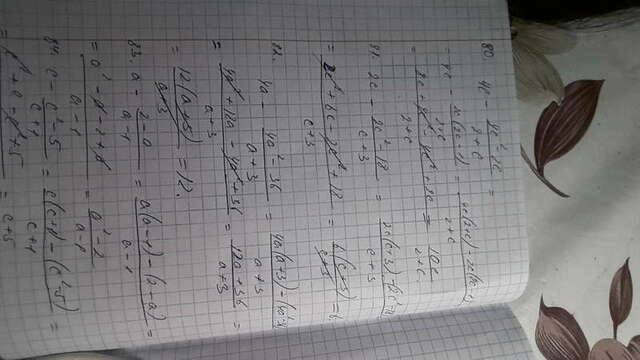 80. 4c - (4c² - 2c)/(2+c) =
= 4c - 2c(2c-1)/(2+c) =
= (8c + 4c² - 4c² + 2c)/(2+c) = 10c/(2+c)
81. 2c - (2c² - 18)/(c+3) =
= (2c² + 6c - 2c² + 18)/(c+3) =
82. 4a - (4a² - 36)/(a+3) =
= (4a² + 12a - 4a² + 36)/(a+3) = (12a + 36)/(a+3) =
= 12(a+3)/(a+3) = 12.
83. a - (2-a)/(a-1) = (a(a-1) - (2-a))/(a-1) =
= (a² - a - 2 + a)/(a-1) = (a² - 2)/(a-1)
84. c - (c² - 5)/(c+1) = (c(c+1) - (c² - 5))/(c+1) =
= (c² + c - c² + 5) = c + 5